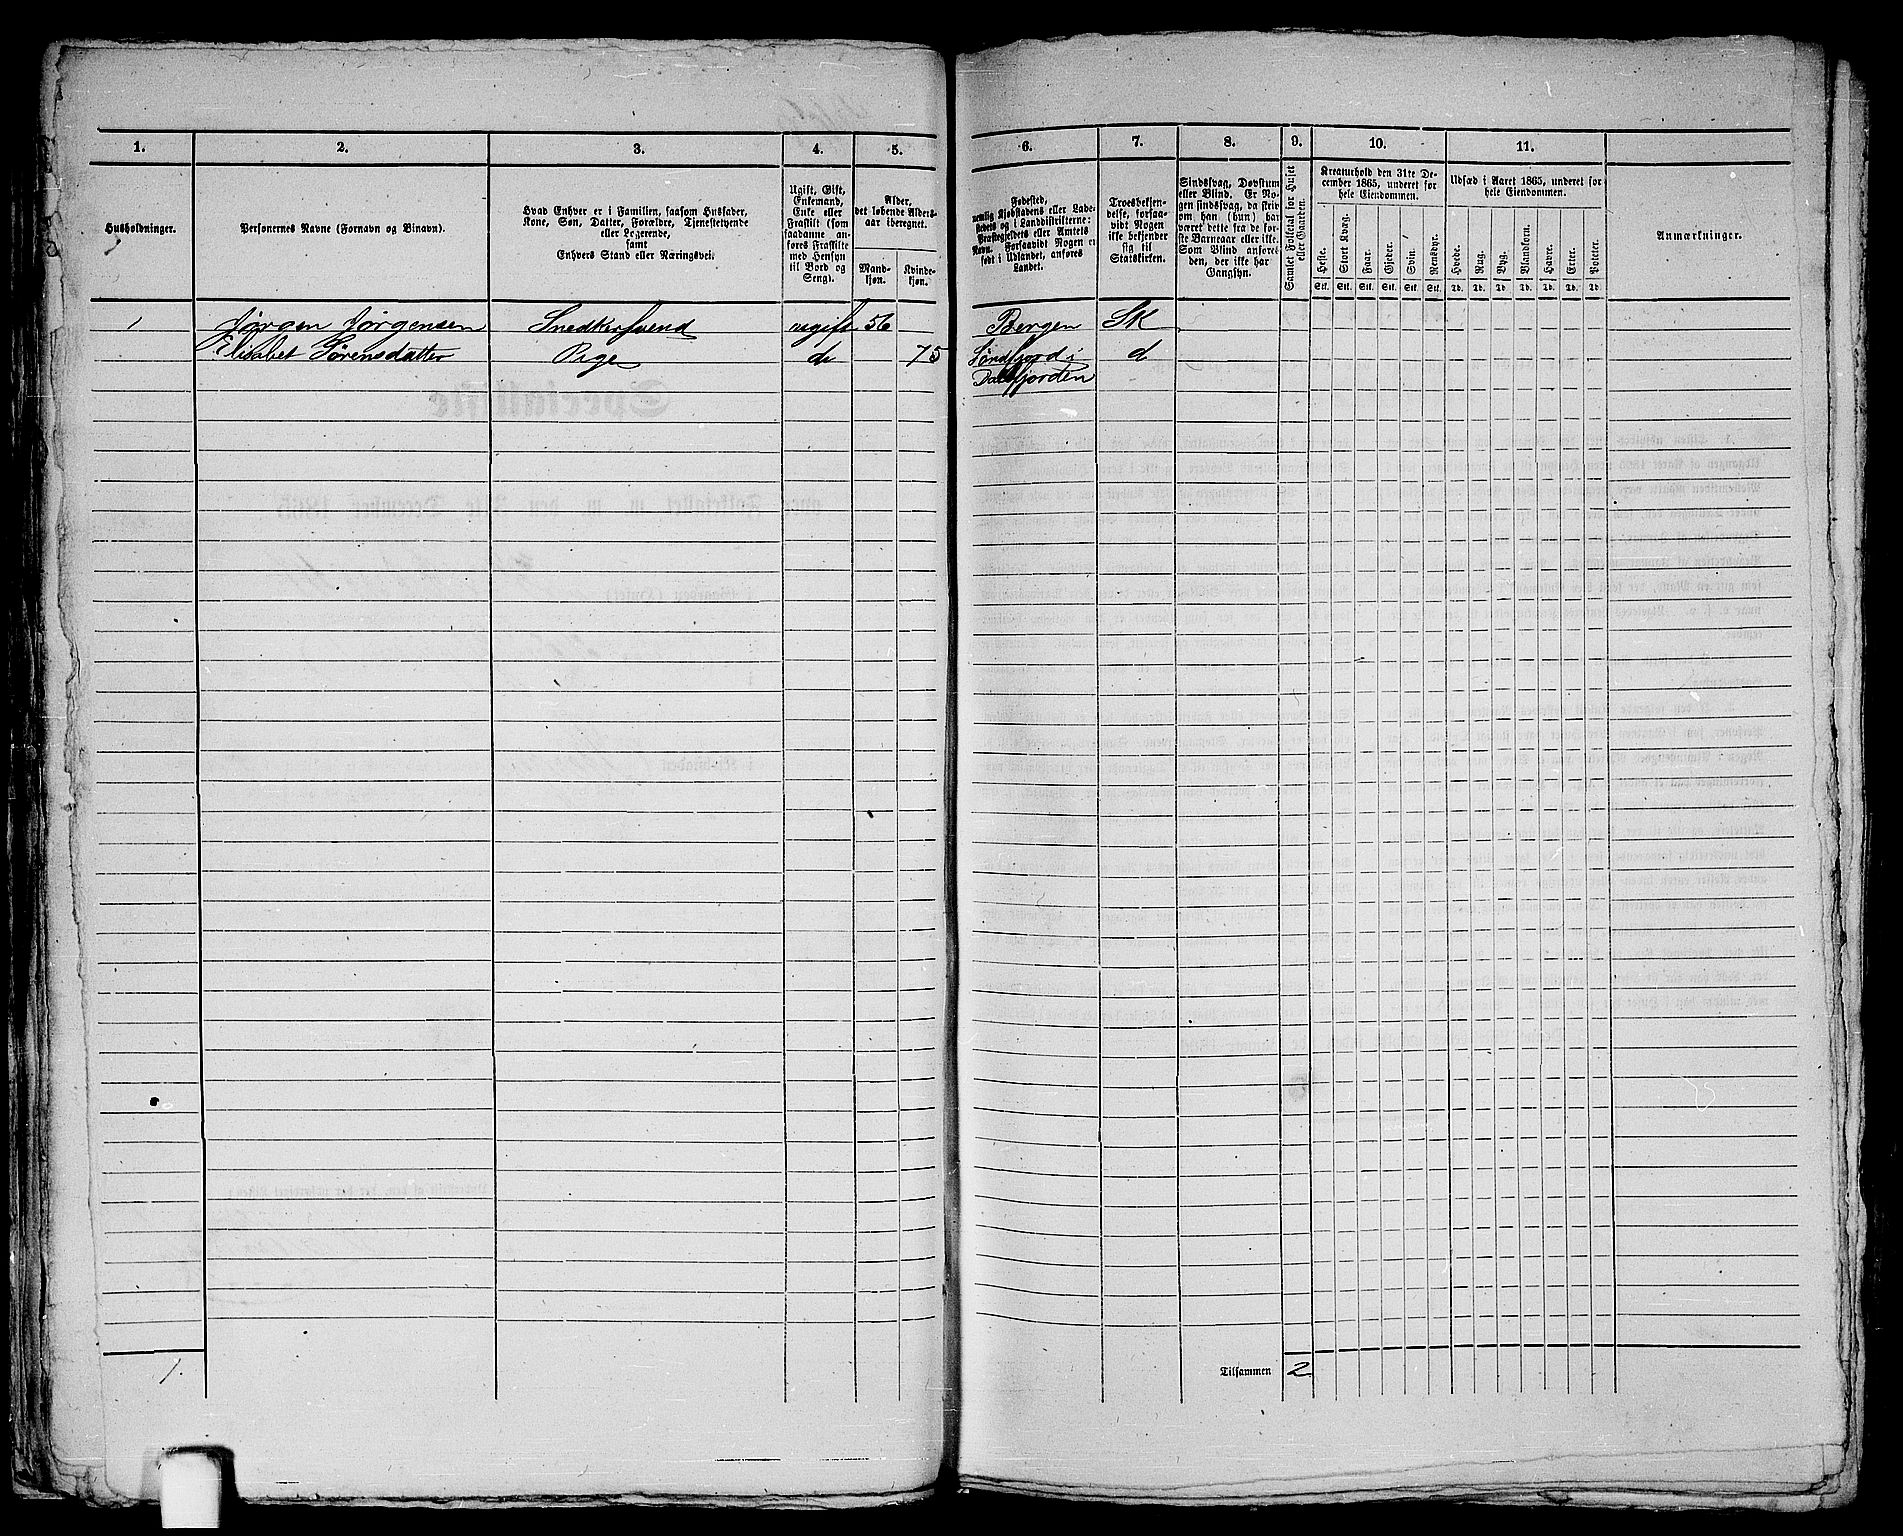 1. 2. 3. 4. 5. 6. 7. 8. 9. 10. 11.
Husholdninger.
Personernes Navne (Fornavn og Binavn).
Hvad Enhver er i Familien, saasom Husfader,
Kone, Søn, Datter, Forældre, Tjenestetyende
eller Logerende,
samt
Enhvers Stand eller Næringsvei.
Ugift, Gift,
Enkemand,
Enke eller
Fraskilt (som
saadanne an-
føres Fraskilte
med Hensyn
til Bord og
Seng).
Alder,
det løbende Alders-
aar iberegnet.
Mand-
kjøn.
Kvinde-
kjøn.
Fødested,
nemlig Kjøbstadens eller Lade-
stedets og i Landdistrikterne:
Præstegjeldets eller Amtets
Navn. Forsaavidt Nogen er
født i Udlandet, anføres
Landet.
Troesbekjen-
delse, forsaa-
vidt Nogen
ikke bekjender
sig til
Statskirken.
Sindssvag, Døvstum
eller Blind. Er No-
gen sindssvag, da skriv
om han (hun) har
været dette fra de før-
ste Barneaar eller ikke.
Som Blind anføres
den, der ikke har
Gangsyn.
Samlet Folketal for Huset
eller Gaarden.
Kreaturhold den 31te De-
cember 1865, underet for
hele Eiendommen.
Heste. Stort Kvæg. Faar. Gjeder. Svin. Rensdyr.
Stk. Stk. Stk. Stk. Stk. Stk.
Udsæd i Aaret 1865, underet for
hele Eiendommen.
Hvede. Rug. Byg. Blandkorn. Havre. Erter. Poteter.
Td. Td. Td. Td. Td. Td. Td.
Anmærkninger.
1 Jørgen Jørgensen Snedkersvend ugift 56 Bergen SK
Elisabet Sørensdatter Pige do 75 Søndfjord i d
Dalsfjorden
1. Tilsammen 2